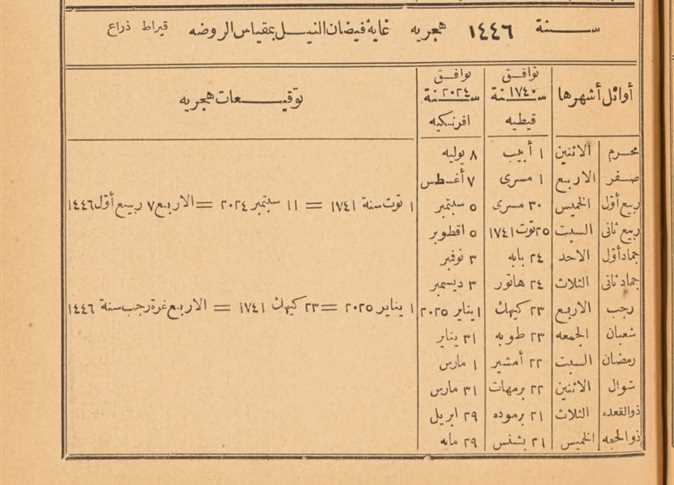 سنة ١٤٤٦ هجريه غاية فيضان النيل بمقياس الروضه قيراط ذراع
أوائل أشهرها توافق سنة ١٧٤٠ قبطيه توافق سنة ٢٠٢٤ افرنكيه توقيعات هجريه
محرم الاثنين ١ أبيب ٨ يوليه
صفر الاربع ١ مسرى ٧ أغسطس
ربيع أول الخميس ٣٠ مسرى ٥ سبتمبر ١ توت سنة ١٧٤١ = ١١ سبتمبر ٢٠٢٤ = الاربع ٧ ربيع أول ١٤٤٦
ربيع ثانى السبت ٢٥ توت ١٧٤١ ٥ اقطوبر
جماد أول الاحد ٢٤ بابه ٣ نوفمبر
جماد ثانى الثلاث ٢٤ هاتور ٣ ديسمبر
رجب الاربع ٢٣ كيهك ١ يناير ٢٠٢٥ ١ يناير ٢٠٢٥ = ٢٣ كيهك ١٧٤١ = الاربع غرة رجب سنة ١٤٤٦
شعبان الجمعه ٢٣ طوبه ٣١ يناير
رمضان السبت ٢٢ أمشير ١ مارس
شوال الاثنين ٢٢ برمهات ٣١ مارس
ذوالقعده الثلاث ٢١ برموده ٢٩ ابريل
ذوالحجه الخميس ٢١ بشنس ٢٩ مايه